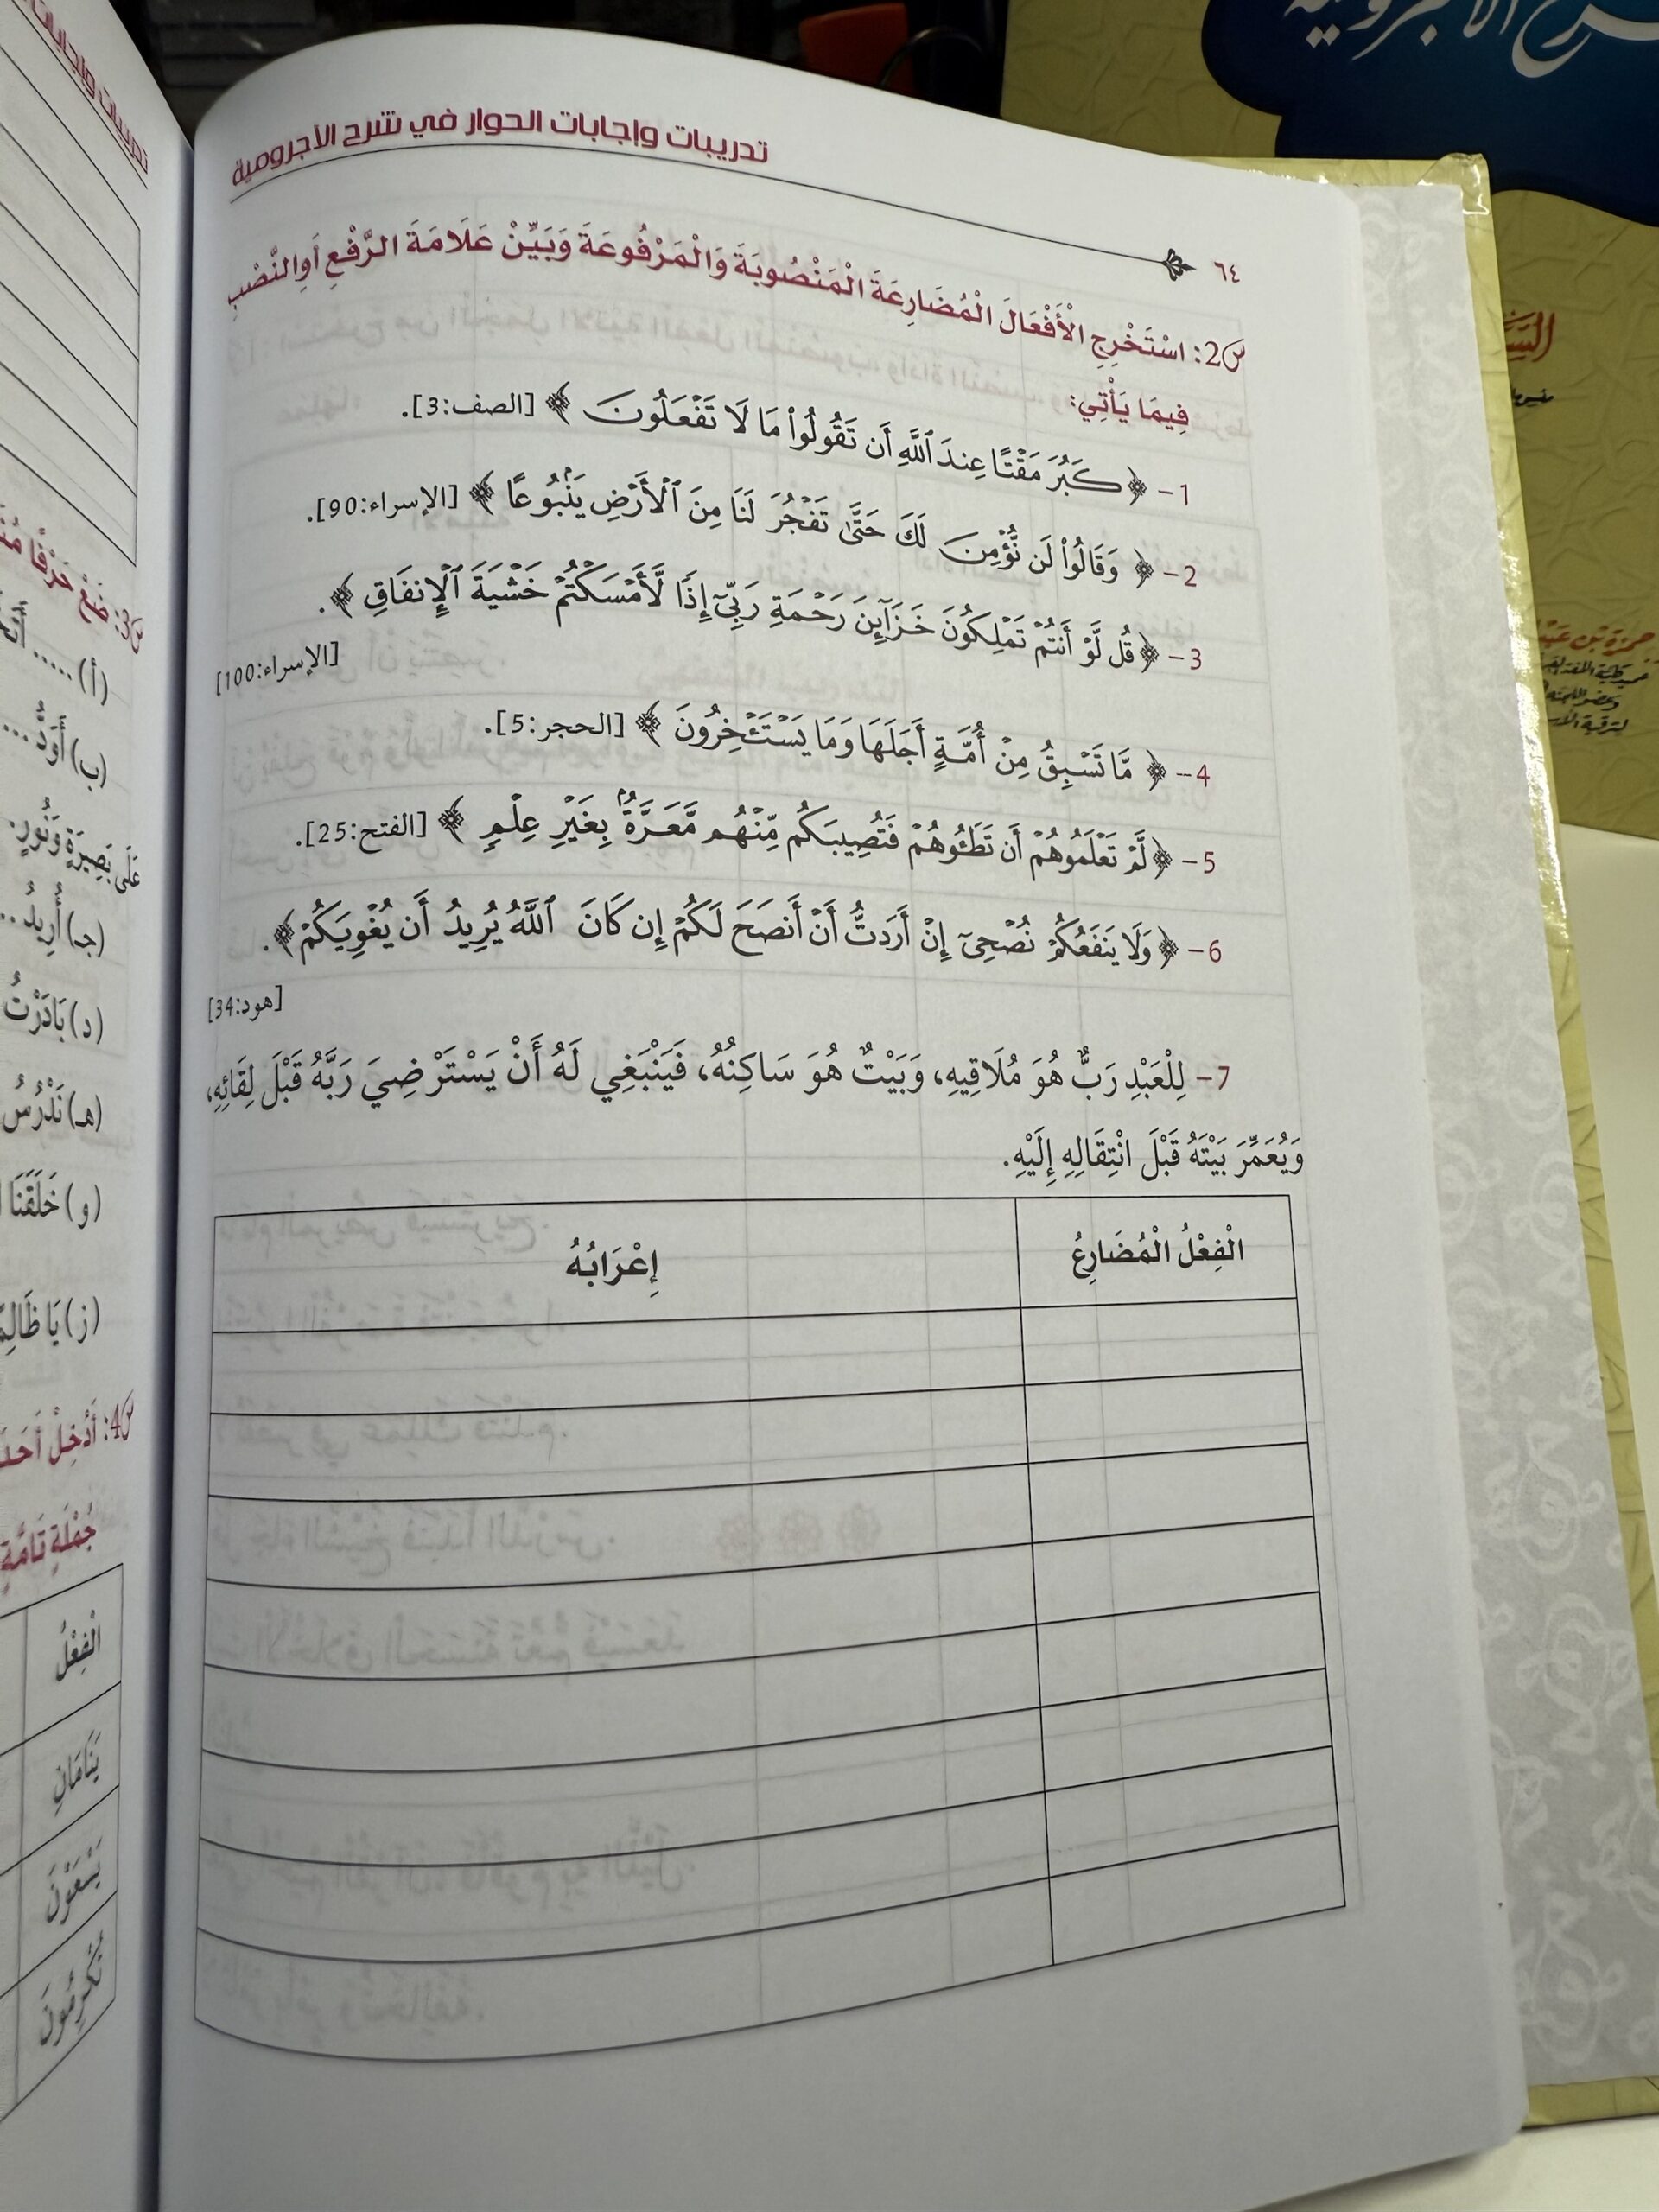 تدريبات وإجابات الحوار في شرح الآجرومية
٦٤
س2: اسْتَخْرِجِ الْأَفْعَالَ الْمُضَارِعَةَ الْمَنْصُوبَةَ وَالْمَرْفُوعَةَ وَبَيِّنْ عَلَامَةَ الرَّفْعِ أَوِ النَّصْبِ
فِيمَا يَأْتِي:
1- ﴿ كَبُرَ مَقْتًا عِندَ ٱللَّهِ أَن تَقُولُوا۟ مَا لَا تَفْعَلُونَ ﴾ [الصف:3].
2- ﴿ وَقَالُوا۟ لَن نُّؤْمِنَ لَكَ حَتَّىٰ تَفْجُرَ لَنَا مِنَ ٱلْأَرْضِ يَنۢبُوعًا ﴾ [الإسراء:90].
3- ﴿ قُل لَّوْ أَنتُمْ تَمْلِكُونَ خَزَآئِنَ رَحْمَةِ رَبِّىٓ إِذًا لَّأَمْسَكْتُمْ خَشْيَةَ ٱلْإِنفَاقِ ﴾.
[الإسراء:100]
4- ﴿ مَّا تَسْبِقُ مِنْ أُمَّةٍ أَجَلَهَا وَمَا يَسْتَـْٔخِرُونَ ﴾ [الحجر:5].
5- ﴿ لَّمْ تَعْلَمُوهُمْ أَن تَطَـُٔوهُمْ فَتُصِيبَكُم مِّنْهُم مَّعَرَّةٌۢ بِغَيْرِ عِلْمٍ ﴾ [الفتح:25].
6- ﴿ وَلَا يَنفَعُكُمْ نُصْحِىٓ إِنْ أَرَدتُّ أَنْ أَنصَحَ لَكُمْ إِن كَانَ ٱللَّهُ يُرِيدُ أَن يُغْوِيَكُمْ ﴾.
[هود:34]
7- لِلْعَبْدِ رَبٌّ هُوَ مُلَاقِيهِ، وَبَيْتٌ هُوَ سَاكِنُهُ، فَيَنْبَغِي لَهُ أَنْ يَسْتَرْضِيَ رَبَّهُ قَبْلَ لِقَائِهِ،
وَيُعَمِّرَ بَيْتَهُ قَبْلَ انْتِقَالِهِ إِلَيْهِ.
الْفِعْلُ الْمُضَارِعُ إِعْرَابُهُ
س3: ضَعْ حَرْفًا
(أ) .....
(ب) أَوَدُّ ...
عَلَى بَصِيرَةٍ وَنُورٍ.
(جـ) أُرِيدُ ..
(د) بَادَرْتُ
(هـ) نَدْرُسُ
(و) خَلَقَنَا
(ز) يَا
س4: أَدْخِلْ
جُمْلَةٍ تَامَّةٍ
الْفِعْلُ
يَنَامَانِ
يَسْعَوْنَ
تُكْرِمُونَ